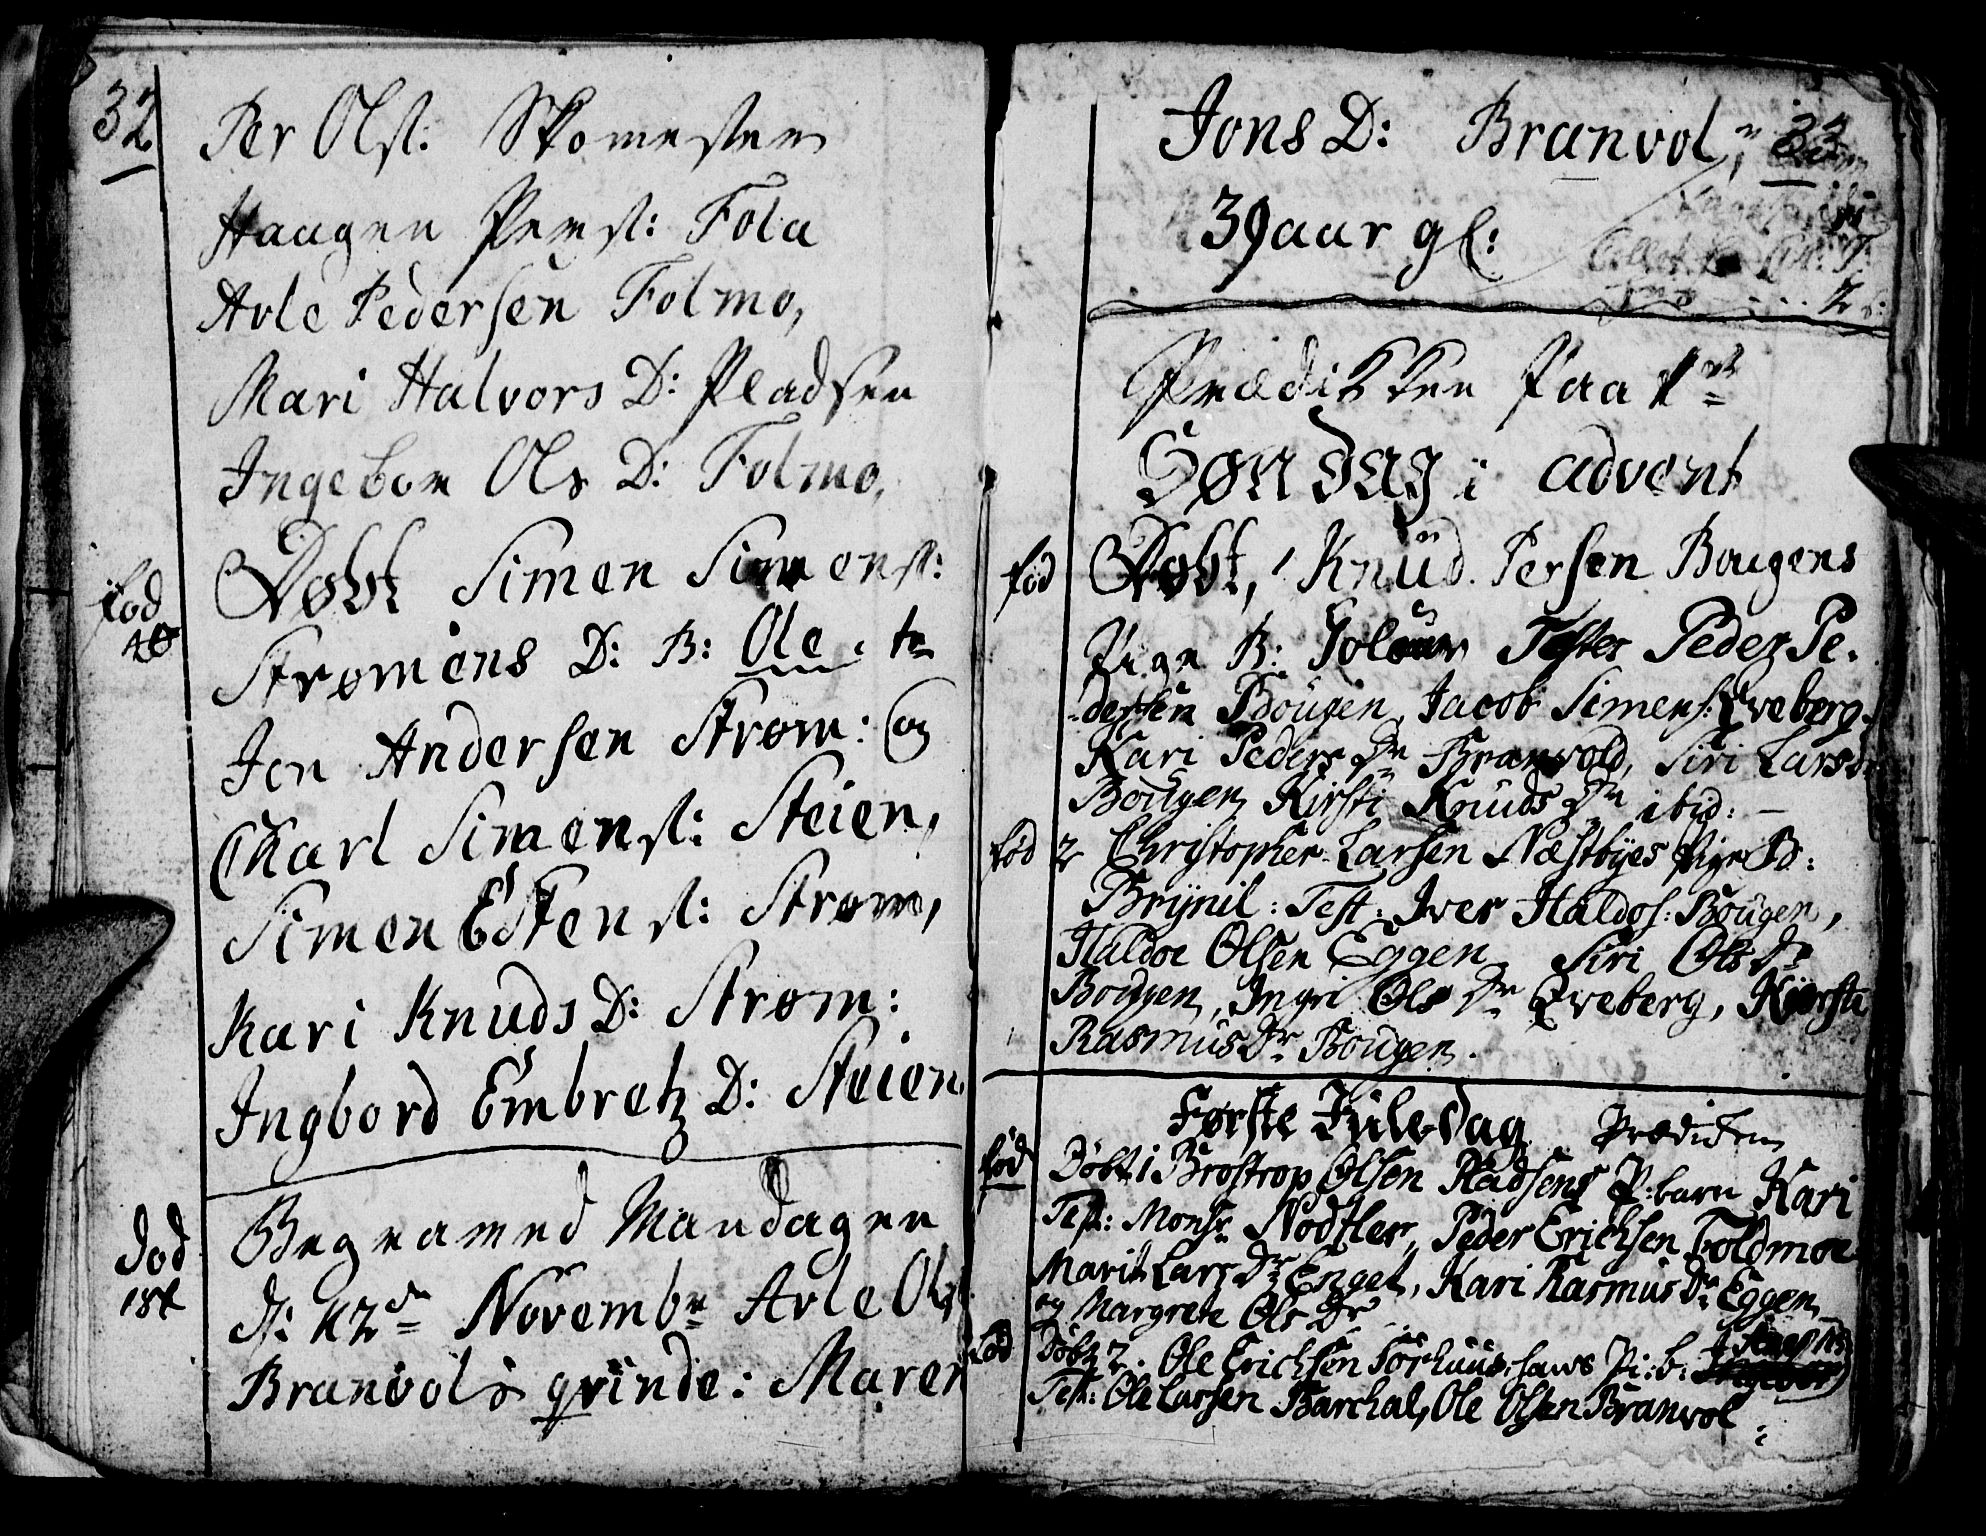 32
Per Olsl: Skomesteren
Haagen Peersl: Fola
Arle Pedersen Folmo,
Mari Halvors D: Pladsen
Ingeborr Ols D: Folmo,
fød
Døbt Simen Simensl:
Strømens D: B: Ole
Jon Andersen Strøm: og
Charl Simensl: Steien,
Simen Estensl: Strøm,
Kari Knuds D: Strøm:
Ingbord Embretz D: Steien
Død
Begravned Mandagen
Novembr Arle Ols
Branvols qvinde: Maren
33
Jons D: Branvol,
39 aar gl:
Prædikken Paa
Søndag i advent
fød
Døbt, 1 Knud Persen Bougens
Pige B: Testes Peder Pe-
dersen Bougen, Jacob Simens: Qveberg
Kari Peders Dr Branvold, Siri Larsd
Bougen Kirsti Knuds Dr ibid: —
fød 2 Christopher Larsen Næstbyes Pige B:
Brynil: Test: Iver Haldos: Bougen,
Haldor Olsen Eggen Siri Ols Dr
Bougen, Ingri Ols Dr Qveberg, Kjersti
Rasmus Dr Bougen.
Første Juledag Prædiken
fød
Døbt 1 Brostrop Olsen Pladsens P: barn Kari
Test: Monsr Nodtler, Peder Erichsen Foldmoe
Marit Lars Dr Enget, Kari Rasmus Dr Eggen
og Margrete Ols Dr
fød
Døbt 2. Ole Erichsen P: b:
Test: Ole Larsen Barchal, Ole Olsen Branvol